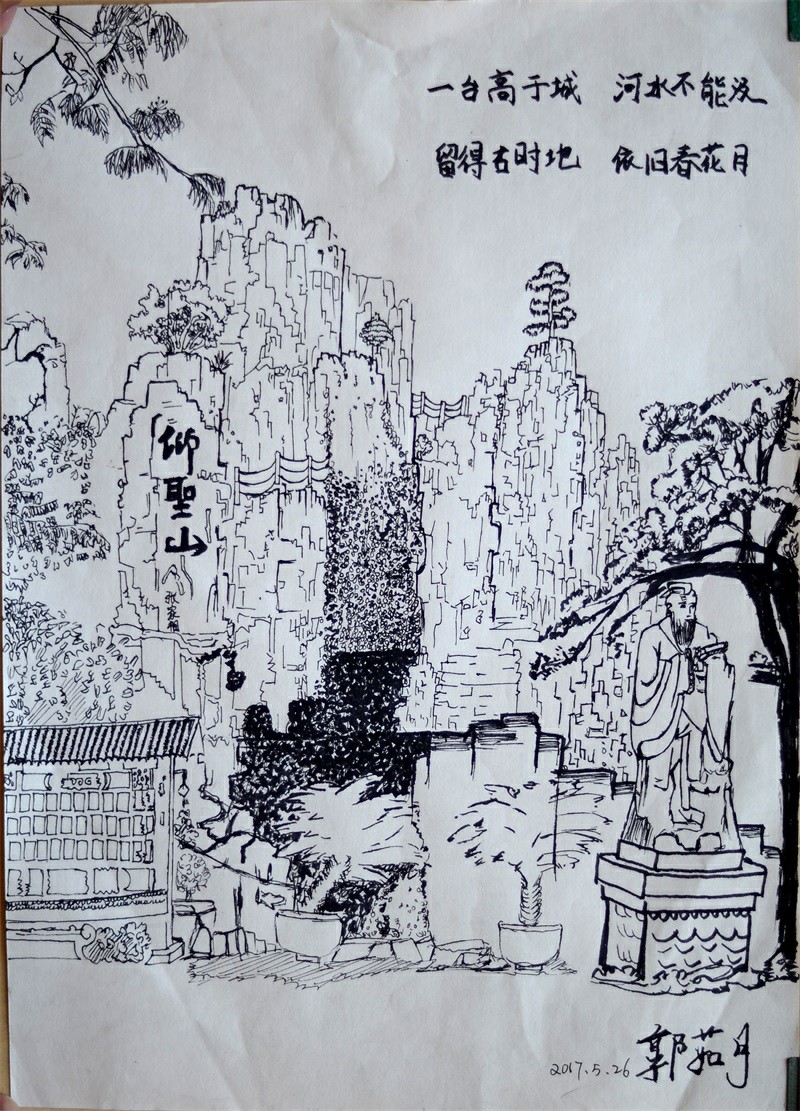 一台高于城 河水不能没
留得古时地 依旧春花月
仰聖山
2017.5.26 郭茹月